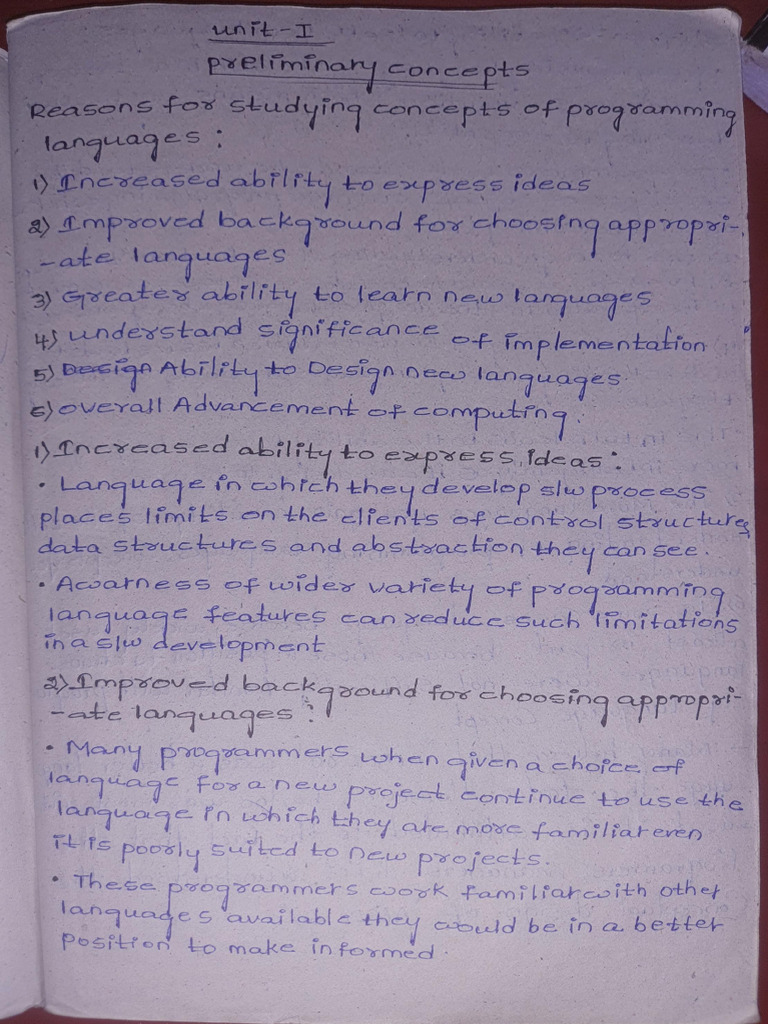 unit-I
preliminary concepts
Reasons for studying concepts of programming
languages :
1) Increased ability to express ideas
2) Improved background for choosing appropri-
-ate languages
3) Greater ability to learn new languages
4) understand significance of implementation
5) Design Ability to Design new languages.
6) overall Advancement of computing.
1) Increased ability to express ideas :
• Language in which they develop s/w process
places limits on the clients of control structures,
data structures and abstraction they can see.
• Awarness of wider variety of programming
language features can reduce such limitations
in a s/w development
2) Improved background for choosing appropri-
-ate languages :
• Many programmers when given a choice of
language for a new project continue to use the
language in which they are more familiar even
it is poorly suited to new projects.
• These programmers work familiar with other
languages available they would be in a better
position to make informed.